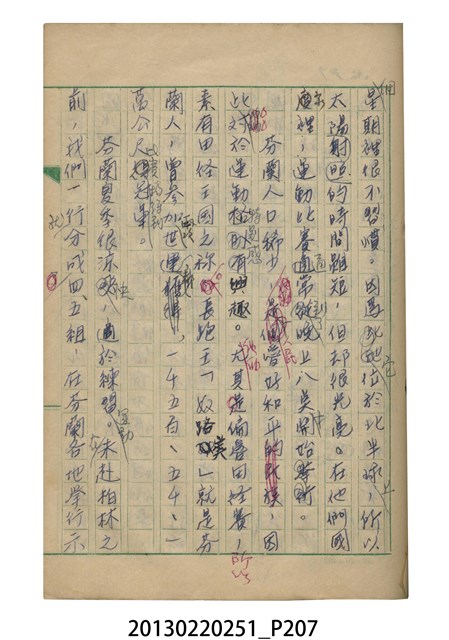 星期裡很不習慣。因為它地位於北半球，所以
太陽射照的時間雖短，但却很光亮。在他們國
度裡，運動比賽通常從晚上八時開始舉行。
芬蘭人口稀少，是個愛好和平的民族，因
此對於運動特別有興趣。尤其是偏愛田徑賽，所以
素有田徑王國之称。長跑王「奴路        」就是芬
蘭人，曾參加世運獲得，一千五百、五千、一
萬公尺        冠軍。
芬蘭夏季很涼爽，適於練習運動。未赴柏林之
前，我們一行分成四、五組，在芬蘭各地舉行示
20130220251_P207